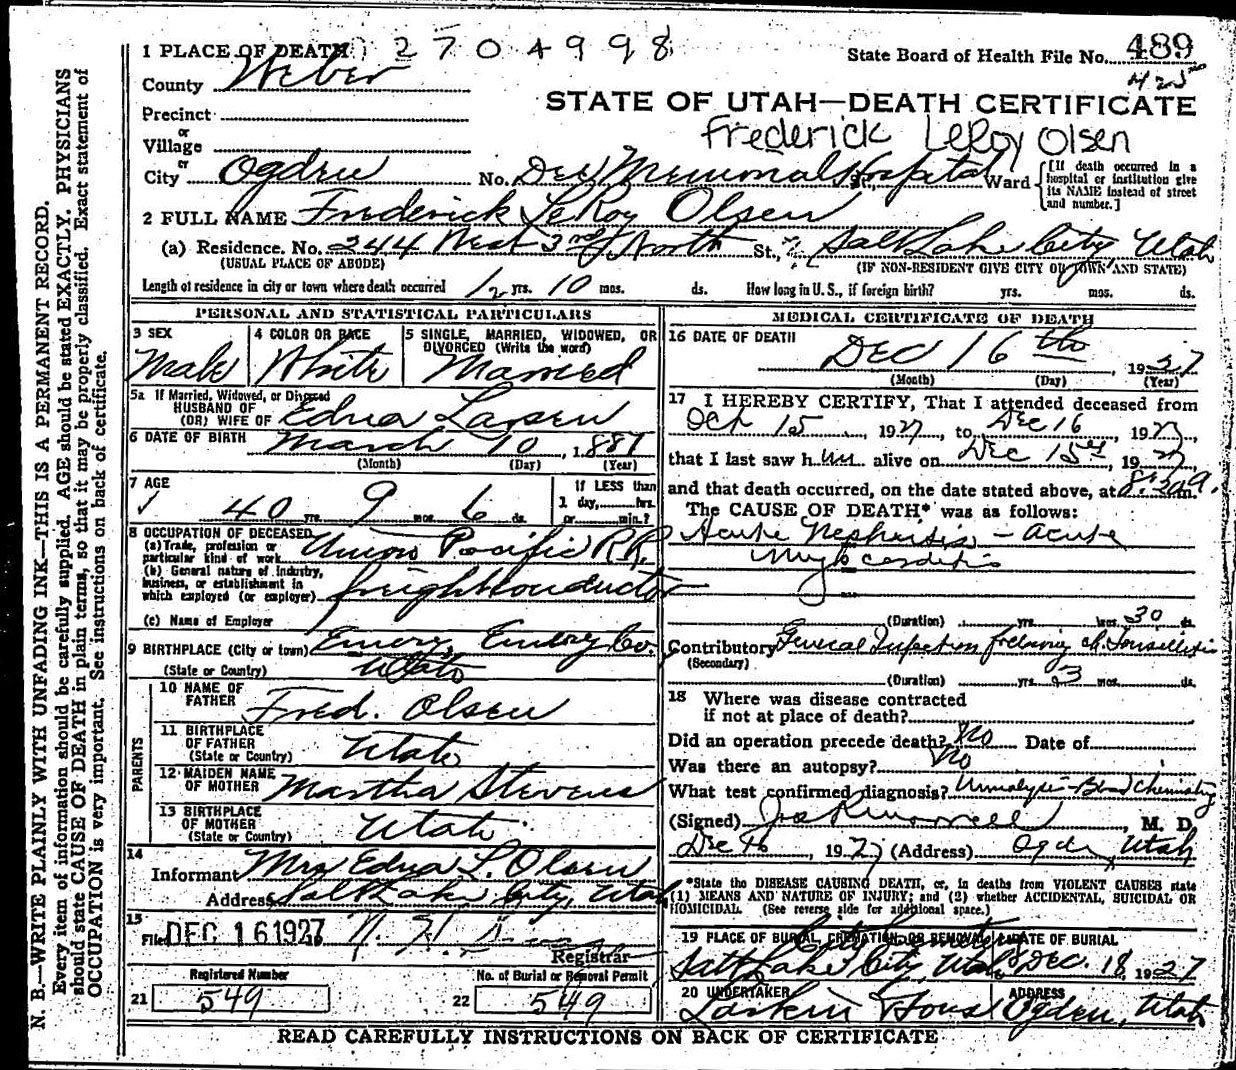 N. B.—WRITE PLAINLY WITH UNFADING INK—THIS IS A PERMANENT RECORD.
Every item of information should be carefully supplied. AGE should be stated EXACTLY. PHYSICIANS
should state CAUSE OF DEATH in plain terms, so that it may be properly classified. Exact statement of
OCCUPATION is very important. See instructions on back of certificate.
2704998
State Board of Health File No. 489
1 PLACE OF DEATH
County Weber
STATE OF UTAH—DEATH CERTIFICATE
Precinct
Frederick LeRoy Olsen
or
Village
or
City Ogden No. Dee Memorial Hospital St., Ward
[If death occurred in a
hospital or institution give
its NAME instead of street
and number.]
2 FULL NAME Frederick LeRoy Olsen
(a) Residence. No. 344 West 3rd North St., Salt Lake City, Utah
(USUAL PLACE OF ABODE) (IF NON-RESIDENT GIVE CITY OR TOWN AND STATE)
Length of residence in city or town where death occurred yrs. 10 mos. ds. How long in U. S., if foreign birth? yrs. mos. ds.
PERSONAL AND STATISTICAL PARTICULARS
3 SEX Male
4 COLOR OR RACE White
5 SINGLE, MARRIED, WIDOWED, OR
DIVORCED (Write the word)
Married
5a If Married, Widowed, or Divorced
HUSBAND OF
(OR) WIFE OF Edna Larsen
6 DATE OF BIRTH March 10, 1887
(Month) (Day) (Year)
7 AGE
40 yrs. 9 mos. 6 ds.
If LESS than
1 day, hrs.
or min.?
8 OCCUPATION OF DECEASED
(a) Trade, profession or
particular kind of work Union Pacific R.R.
(b) General nature of industry,
business, or establishment in
which employed (or employer) freight conductor
(c) Name of Employer
9 BIRTHPLACE (City or town) Emery, Emery Co.
(State or Country) Utah
PARENTS
10 NAME OF
FATHER Fred. Olsen
11 BIRTHPLACE
OF FATHER
(State or Country) Utah
12 MAIDEN NAME
OF MOTHER Martha Stevens
13 BIRTHPLACE
OF MOTHER
(State or Country) Utah
14
Informant Mrs Edna L. Olsen
Address Salt Lake City, Utah
15
Filed DEC 16 1927
Registrar
Registered Number
21 549
No. of Burial or Removal Permit
22 549
MEDICAL CERTIFICATE OF DEATH
16 DATE OF DEATH
Dec 16th 1927
(Month) (Day) (Year)
17 I HEREBY CERTIFY, That I attended deceased from
Oct 15, 1927, to Dec 16, 1927,
that I last saw him alive on Dec 15, 1927
and that death occurred, on the date stated above, at 8:30 m.
The CAUSE OF DEATH* was as follows:
Acute Nephritis - acute
myocarditis
(Duration) yrs. mos. 30 ds.
Contributory General Infection following ch. Tonsillitis
(Secondary)
(Duration) yrs. 3 mos. ds.
18 Where was disease contracted
if not at place of death?
Did an operation precede death? No Date of
Was there an autopsy? No
What test confirmed diagnosis? Urinalysis - Blood Chemistry
(Signed) , M. D.
Dec 16, 1927 (Address) Ogden, Utah
*State the DISEASE CAUSING DEATH, or, in deaths from VIOLENT CAUSES state
(1) MEANS AND NATURE OF INJURY; and (2) whether ACCIDENTAL, SUICIDAL OR
HOMICIDAL. (See reverse side for additional space.)
19 PLACE OF BURIAL, CREMATION, OR REMOVAL DATE OF BURIAL
City Cemetery
Salt Lake City, Utah Dec. 18, 1927
20 UNDERTAKER ADDRESS
Larkin & Sons Ogden, Utah
READ CAREFULLY INSTRUCTIONS ON BACK OF CERTIFICATE